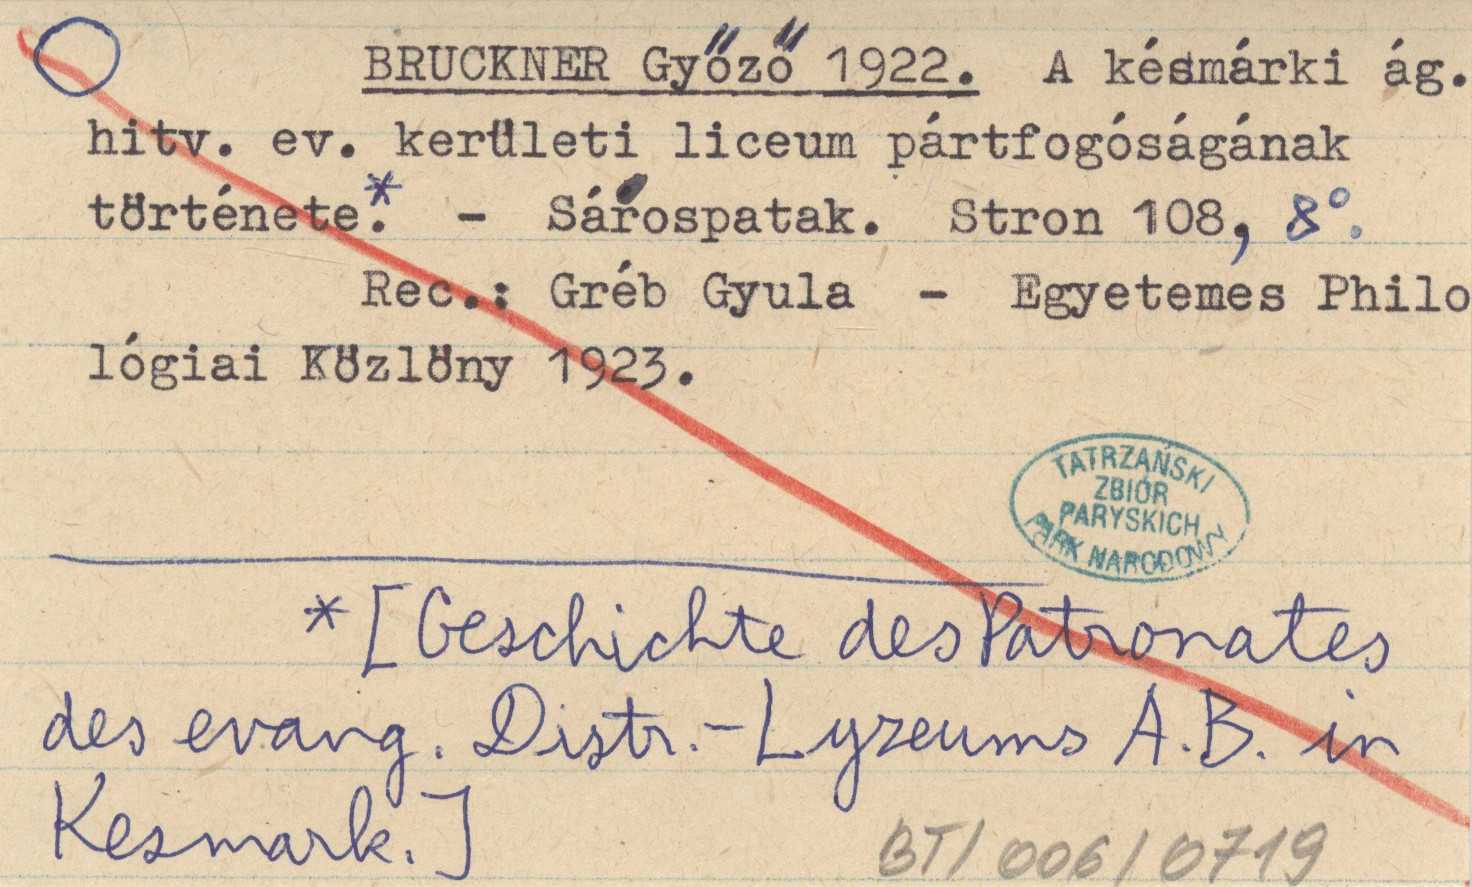 BRUCKNER Győző 1922. A késmárki ág.
hitv. ev. kerületi liceum pártfogóságának
története.* – Sárospatak. Stron 108, 8°.
Rec.: Gréb Gyula – Egyetemes Philo
lógiai Közlöny 1923.
TATRZAŃSKI
ZBIÓR
PARYSKICH
PARK NARODOWY
* [Geschichte des Patronates
des evang. Distr.-Lyzeums A.B. in
Kesmark.]
BT/006/0719